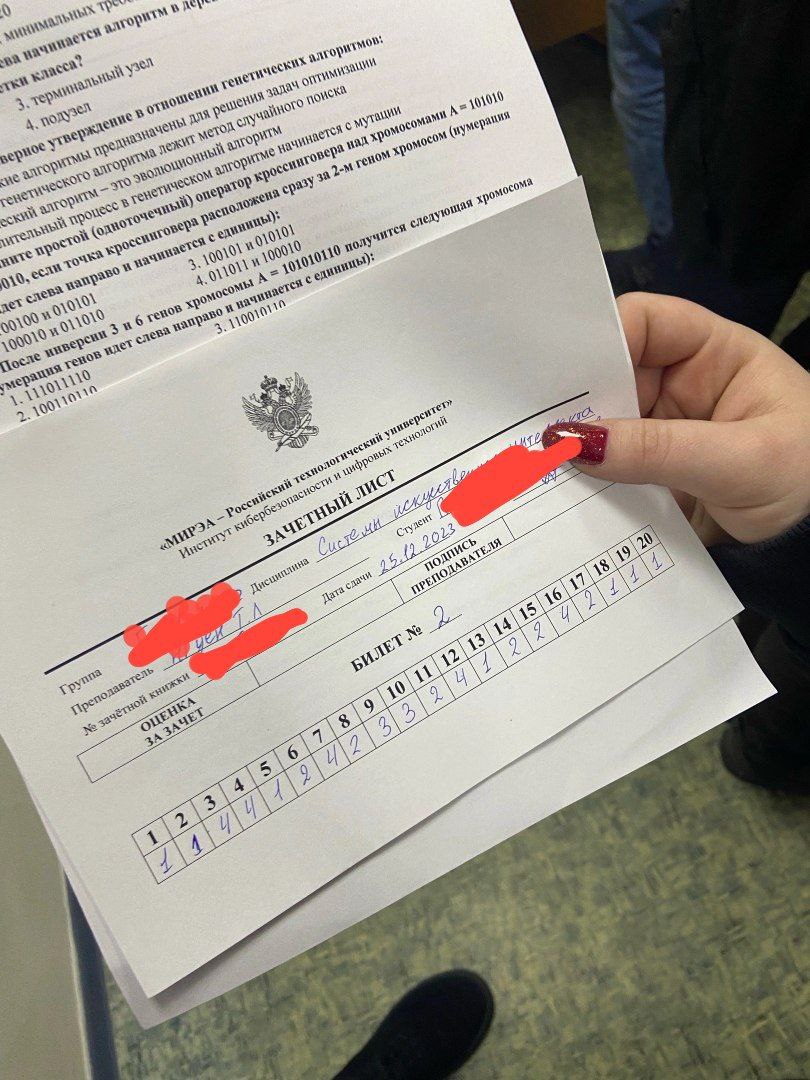 20
минимальных
ева начинается алгоритм в
тки класса?
3. терминальный узел
4. подузел
верное утверждение в отношении генетических алгоритмов:
кие алгоритмы предназначены для решения задач оптимизации
генетического алгоритма лежит метод случайного поиска
еский алгоритм – это эволюционный алгоритм
лительный процесс в генетическом алгоритме начинается с мутации
ните простой (одноточечный) оператор кроссинговера над хромосомами A = 101010
0010, если точка кроссинговера расположена сразу за 2-м геном хромосом (нумерация
дет слева направо и начинается с единицы):
00100 и 010101
3. 100101 и 010101
100010 и 011010
4. 011011 и 100010
После инверсии 3 и 6 генов хромосомы A = 101010110 получится следующая хромосома
умерация генов идет слева направо и начинается с единицы):
1. 111011110
3. 110010110
2. 100110110
«МИРЭА – Российский технологический университет»
Институт кибербезопасности и цифровых технологий
ЗАЧЕТНЫЙ ЛИСТ
Группа
Дисциплина Системы
Преподаватель
Студент
№ зачётной книжки
Дата сдачи 25.12.2023
ОЦЕНКА ЗА ЗАЧЕТ
ПОДПИСЬ ПРЕПОДАВАТЕЛЯ
БИЛЕТ № 2
1 2 3 4 5 6 7 8 9 10 11 12 13 14 15 16 17 18 19 20
1 1 4 4 1 2 4 2 3 3 2 4 1 2 2 4 2 1 1 1